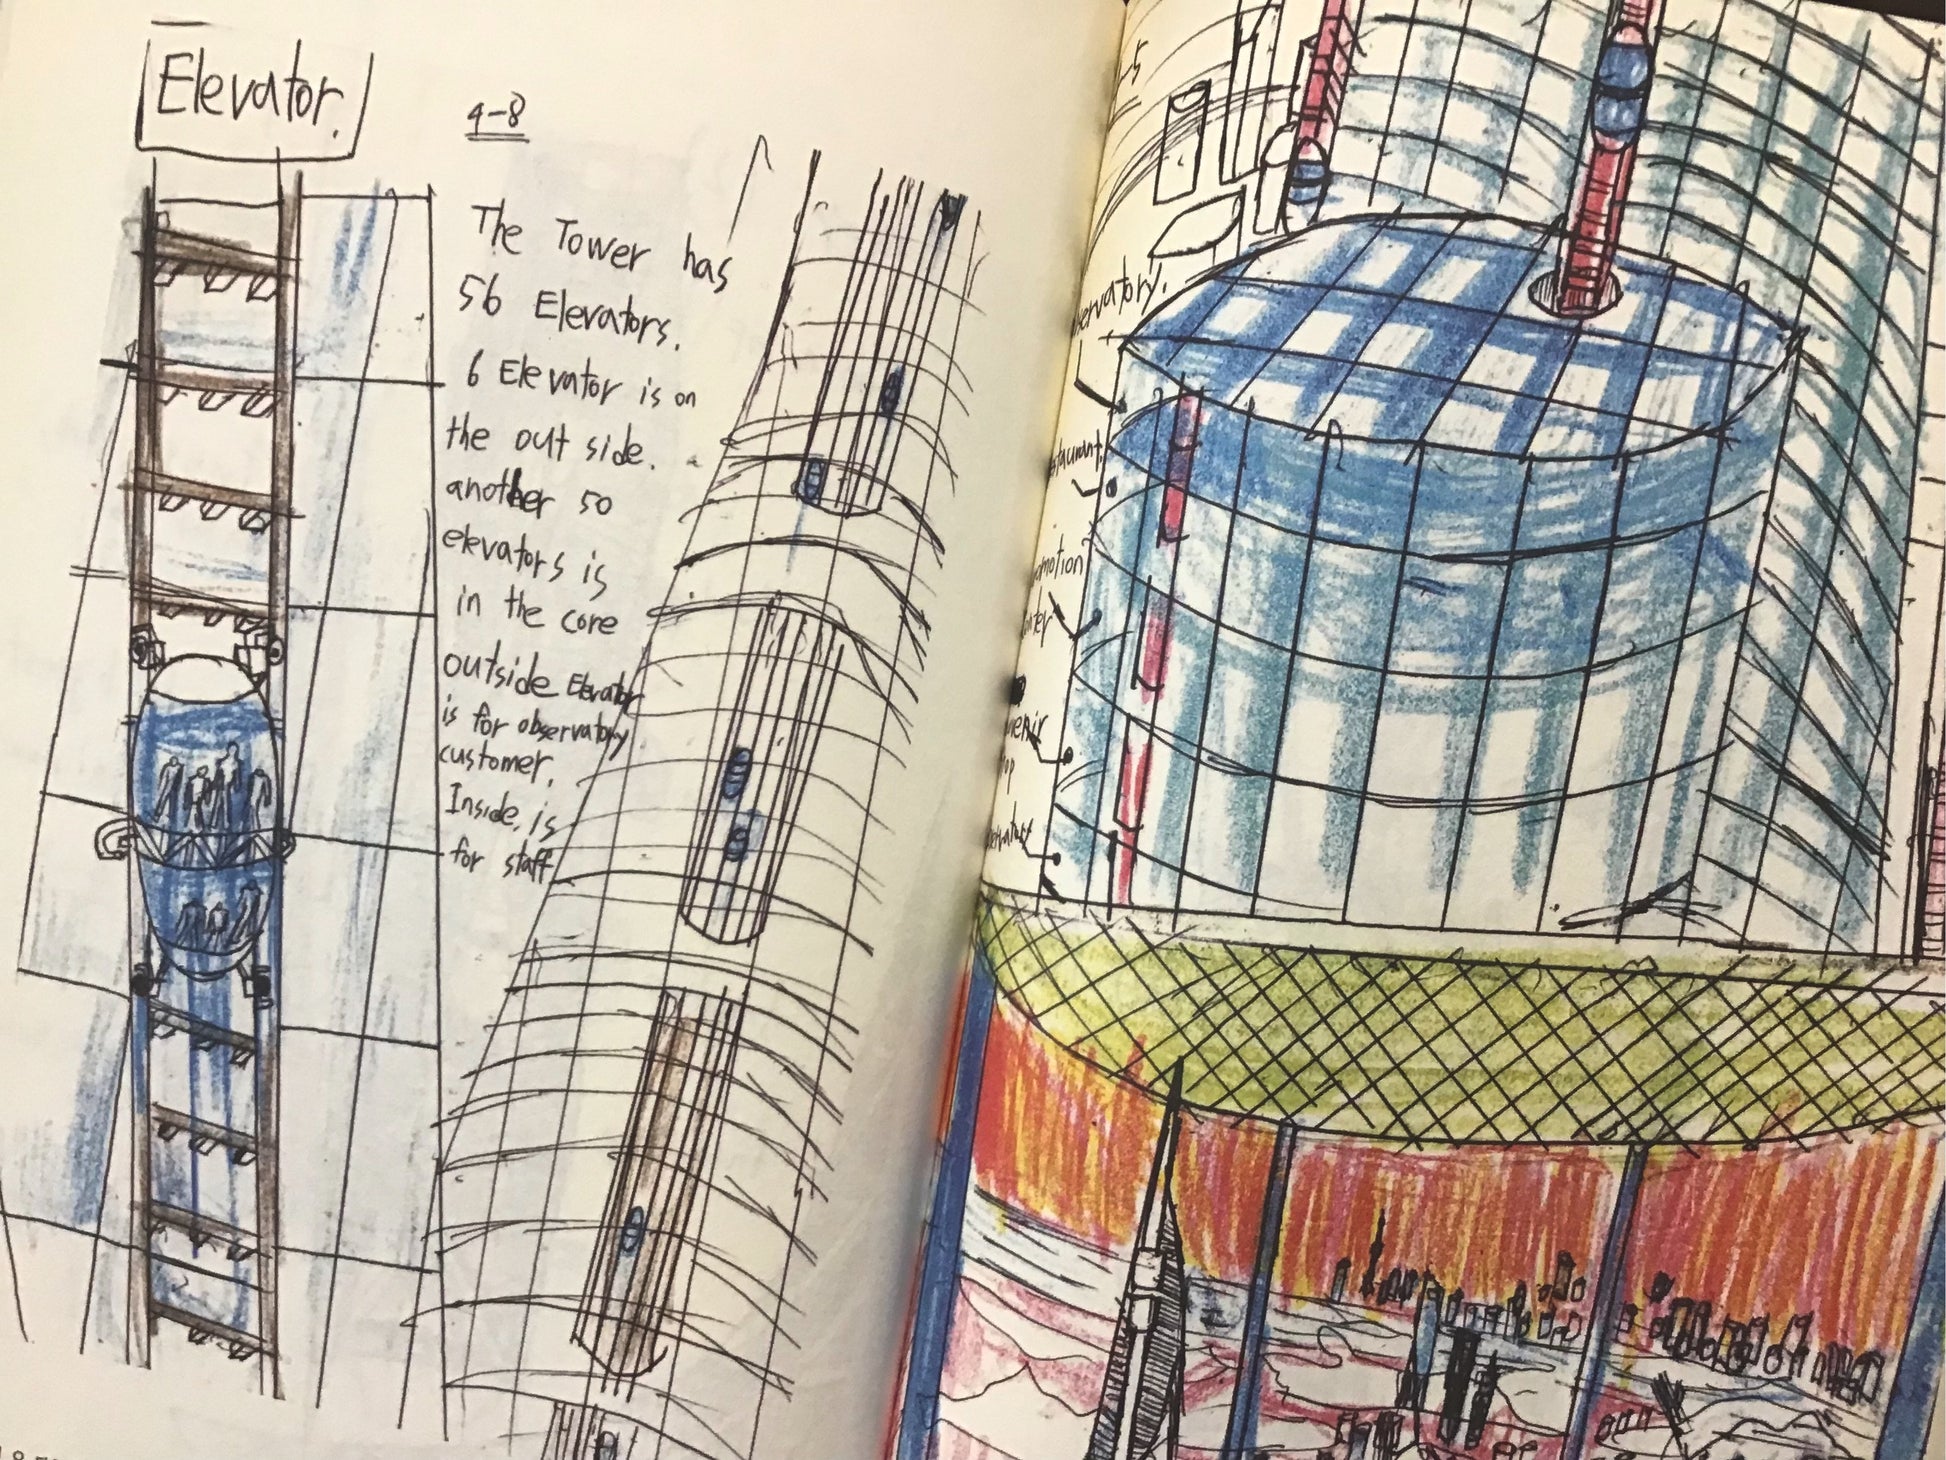 Elevator.
4-8
The Tower has
56 Elevators.
6 Elevator is on
the out side.
another 50
elevators is
in the core
outside Elevator
is for observatory
customer.
Inside, is
for staff